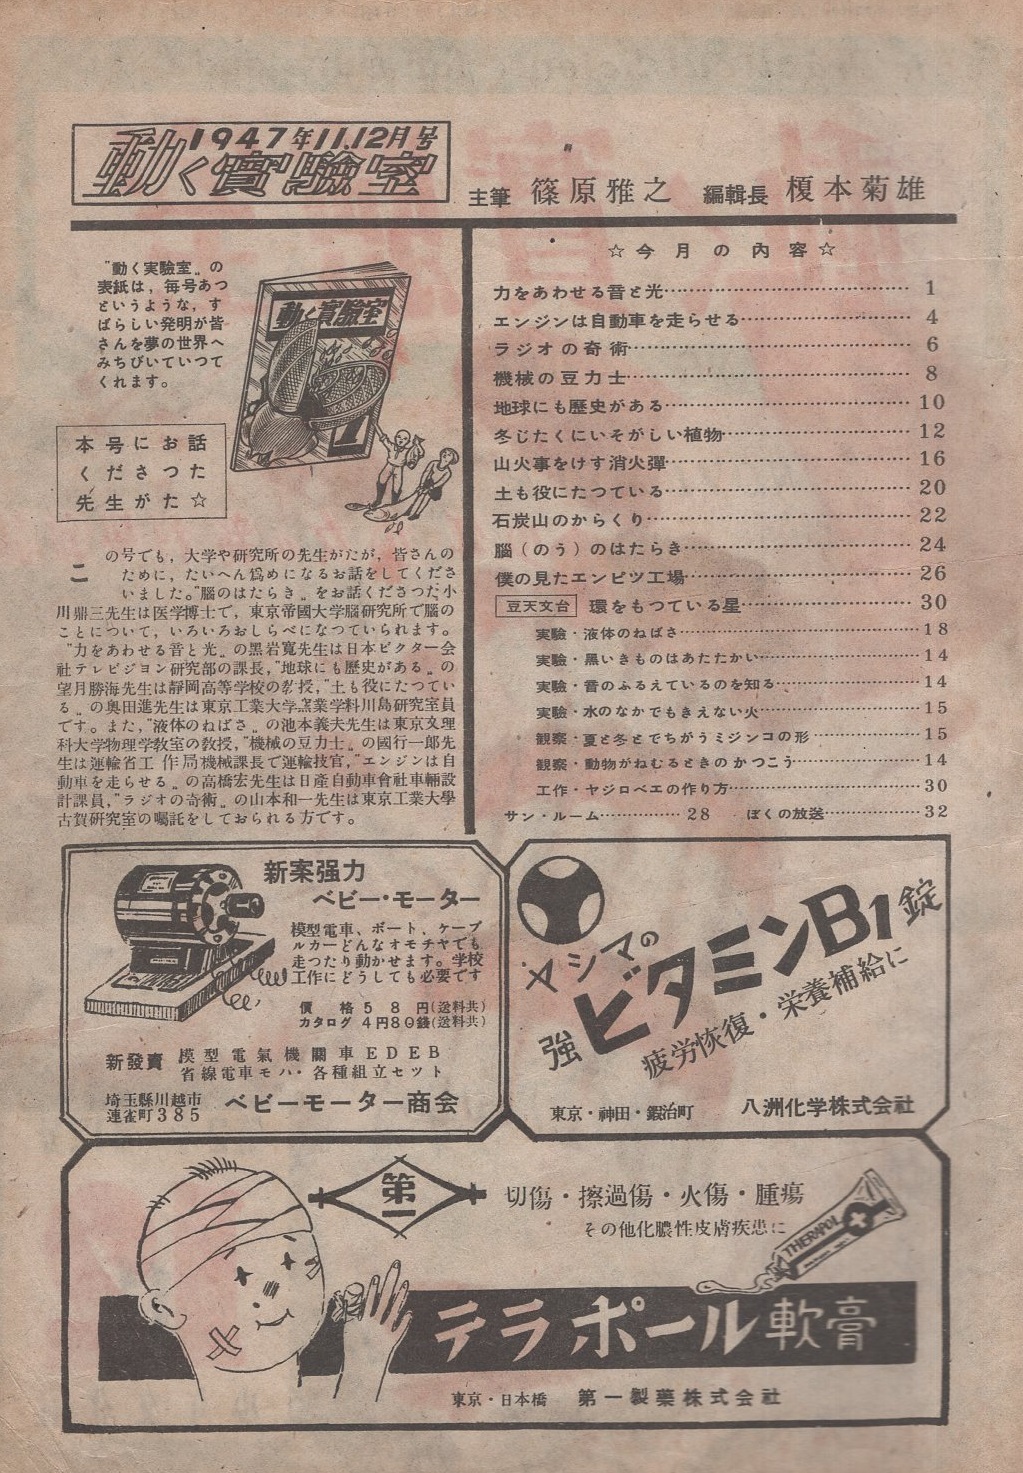 1947年11.12月号
動く實驗室
主筆 篠原雅之 編輯長 榎本菊雄
"動く実験室„の
表紙は，毎号あつ
というような，す
ばらしい発明が皆
さんを夢の世界へ
みちびいていつて
くれます。
動く實驗室
1
本号にお話
くださつた
先生がた☆
この号でも，大学や研究所の先生がたが，皆さんの
ために，たいへん爲めになるお話をしてくださ
いました。"脳のはたらき„をお話くださつた小
川鼎三先生は医学博士で，東京帝國大学脳研究所で脳の
ことについて，いろいろおしらべになつていられます。
"力をあわせる音と光„の黒岩寬先生は日本ビクター会
社テレビジヨン研究部の課長，"地球にも歴史がある„の
望月勝海先生は靜岡高等学校の教授，"土も役にたつてい
る„の奥田進先生は東京工業大学窯業学科川島研究室員
です。また，"液体のねばさ„の池本義夫先生は東京文理
科大学物理学教室の教授，"機械の豆力士„の國行一郎先
生は運輸省工作局機械課長で運輸技官，"エンジンは自
動車を走らせる„の高橋宏先生は日産自動車會社車輛設
計課員，"ラジオの奇術„の山本和一先生は東京工業大學
古賀研究室の囑託をしておられる方です。
☆今月の内容☆
力をあわせる音と光…………1
エンジンは自動車を走らせる…………4
ラジオの奇術…………6
機械の豆力士…………8
地球にも歴史がある…………10
冬じたくにいそがしい植物…………12
山火事をけす消火彈…………16
土も役にたつている…………20
石炭山のからくり…………22
腦（のう）のはたらき…………24
僕の見たエンピツ工場…………26
豆天文台 環をもつている星…………30
実驗・液体のねばさ…………18
実驗・黒いきものはあたたかい…………14
実驗・音のふるえているのを知る…………14
実驗・水のなかでもきえない火…………15
観察・夏と冬とでちがうミジンコの形…………15
観察・動物がねむるときのかつこう…………14
工作・ヤジロベエの作り方…………30
サン・ルーム…………28 ぼくの放送…………32
新案强力
ベビー・モーター
模型電車、ボート、ケーブ
ルカーどんなオモチヤでも
走つたり動かせます。学校
工作にどうしても必要です
價格58円(送料共)
カタログ 4円80錢(送料共)
新發賣 模型電氣機關車EDEB
省線電車モハ・各種組立セット
埼玉縣川越市
連雀町385 ベビーモーター商会
ヤシマの
強ビタミンB1錠
疲労恢復・栄養補給に
東京・神田・鍛治町 八洲化学株式会社
第一
切傷・擦過傷・火傷・腫瘍
その他化膿性皮膚疾患に
THERAPOL
テラポール軟膏
東京・日本橋 第一製薬株式会社